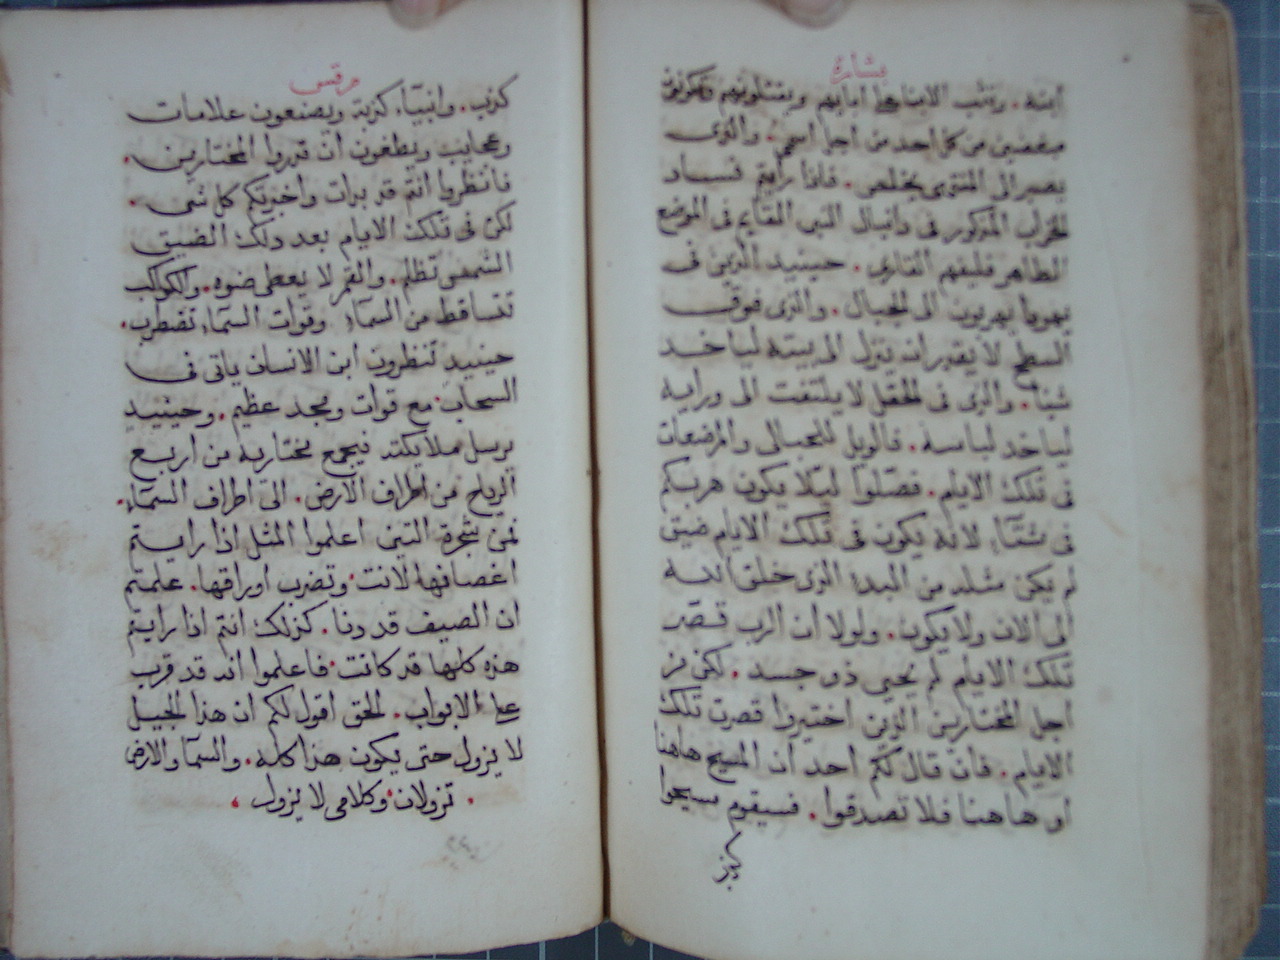 بشارة
ابنه. وتثب الابنا على ابايهم ويقتلونهم وتكونون
مبغضين من كل احد من اجل اسمي. والذى
يصبر الى المنتهى يخلص. فاذا رايتم فساد
الخراب المذكور فى دانيال النبى القايم فى الموضع
الطاهر فليفهم القارى. حينيد الذين فى
يهودا يهربون الى الجبال. والذى فوق
السطح لا يقدر ان ينزل الى بيته لياخد
شيئا. والذى فى الحقل لا يلتفت الى ورايه
لياخد لباسه. فالويل للحبالى والمرضعات
فى تلك الايام. فصلوا ليلا يكون هربكم
فى شتاء لانه يكون فى تلك الايام ضيق
لم يكن مثله من البدء الذى خلق الله
الى الان ولا يكون. ولولا ان الرب قصر
تلك الايام لم يحيى ذو جسد. لكن من
اجل المختارين الذين اختيروا قصرت تلك
الايام. فان قال لكم احد ان المسيح هاهنا
او هاهنا فلا تصدقوا. فسيقوم مسيحوا
مرقس
كذب. وانبياء كذبة ويصنعون علامات
وعجايب ويطغون ان قدروا المختارين.
فانظروا انتم قد برات واخبرتكم كل شى.
لكن فى تلك الايام بعد دلك الضيق
الشمس تظلم. والقمر لا يعطى ضوه. والكواكب
تتساقط من السماء وقوات السماء تضطرب.
حينيد تنظرون ابن الانسان ياتى فى
السحاب مع قوات ومجد عظيم. وحينيد
يرسل ملايكته فيجمع مختاريه من اربع
الرياح من اطراف الارض. الى اطراف السماء.
فمن شجرة التين اعلموا المثل اذا رايتم
اغصانها لانت وتضرب اوراقها. علمتم
ان الصيف قد دنا. كذلك انتم اذا رايتم
هذه كلها قد كانت فاعلموا انه قد قرب
على الابواب. الحق اقول لكم ان هذا الجيل
لا يزول حتى يكون هذا كله. والسما والارض
تزولان وكلامى لا يزول